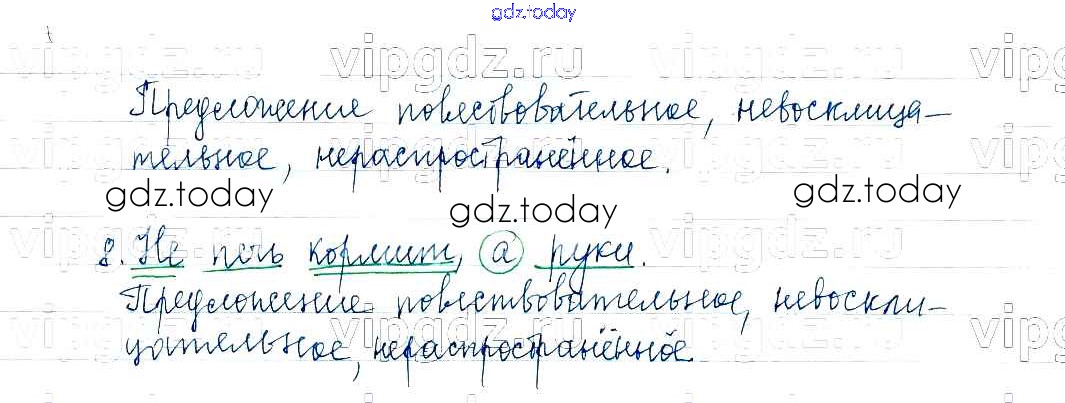 gdz.today
vipgdz.ru vipgdz.ru vipgdz.ru vip
Предложение повествовательное, невосклица-
тельное, нераспространённое.
gdz.today gdz.today gdz.today
8. Не печь кормит, а руки.
Предложение повествовательное, невоскли-
цательное, нераспространённое.